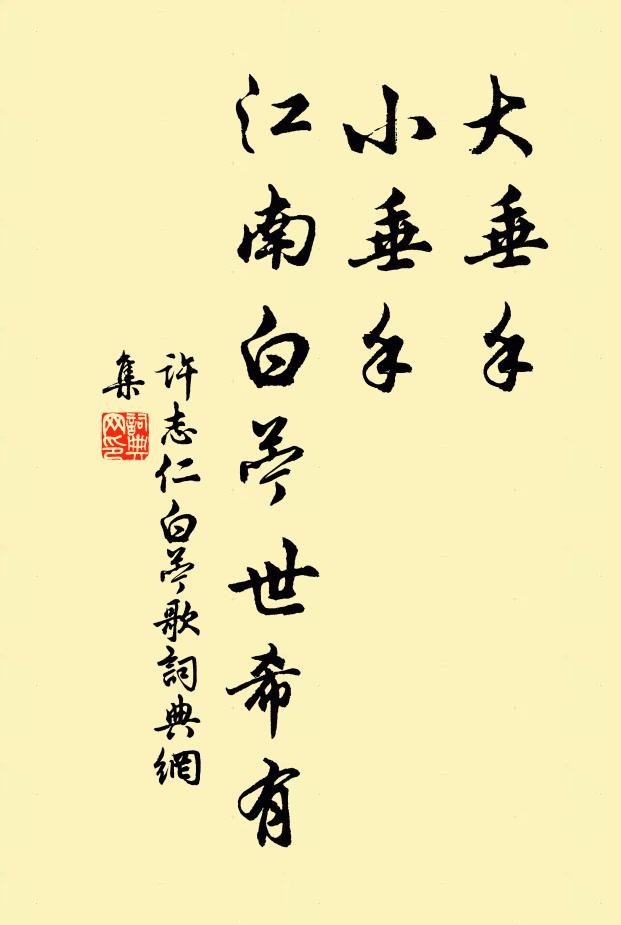 大垂手
小垂手
江南白苧世希有
許志仁白苧歌詞典網
集
詞典
网印